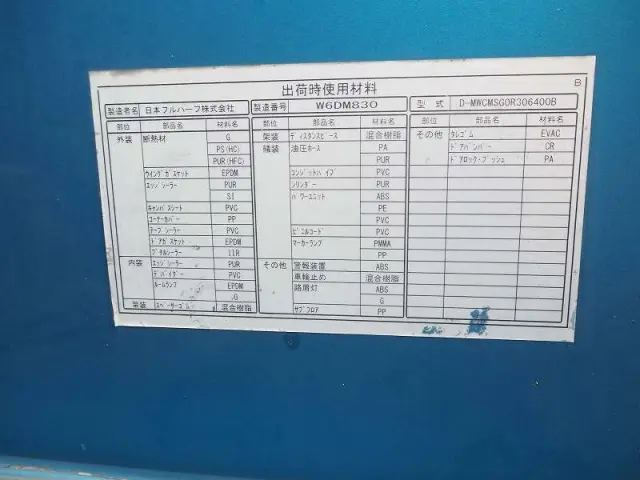 出荷時使用材料
B
製造者名 日本フルハーフ株式会社 製造番号 W6DM830 型式 D-MWCMSG0R306400B
部位 部品名 材料名 部位 部品名 材料名 部位 部品名 材料名
外装 断熱材 G 架装 ディスタンスピース 混合樹脂 その他 タレゴム EVAC
PS(HC) 艤装 油圧ホース PA ドアバンパー CR
PUR(HFC) PUR ドアロック・ブッシュ PA
ウイングガスケット EPDM コンジットパイプ PVC
エッジシーラー PUR シリンダー PUR
SI パワーユニット ABS
キャンバスシート PVC PE
コーナーカバー PP PVC
テープシーラー PVC ビニルコード PVC
ドアガスケット EPDM マーカーランプ PMMA
ブチルシーラー IIR PP
内装 エッジシーラー PUR その他 警報装置 ABS
デバイダー PVC 車輪止め 混合樹脂
ルームランプ EPDM 路肩灯 ABS
G G
架装 スペーサーゴム 混合樹脂 サブフロア PP